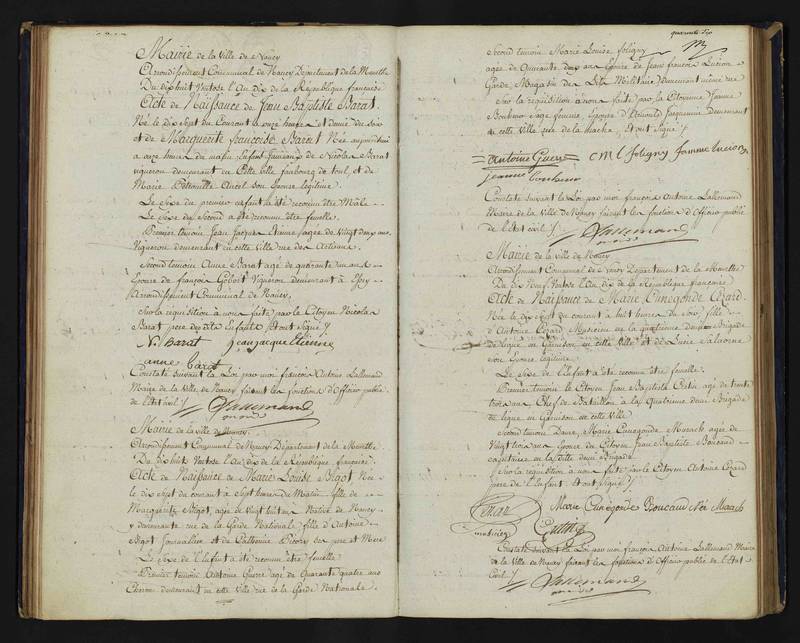 Mairie de la Ville de Nancy
Arrondissement Communal de Nancy Département de la Meurthe
Du dix huit Ventose l'An dix de la République française
Acte de Naissance de Jean Baptiste Barat.
Né le dix Sept du Courant à onze heures et demie du soir
et de Marguerite françoise Barat Née aujourd'hui
à onze heures du matin Enfants Jumeaux de Nicolas Barat
vigneron demeurant en Cette ville faubourg de toul, et de
Marie Petronille Ancel son Epouse légitime.
Le Sexe du premier enfant a été reconnu être Mâle
Le Sexe du Second a été reconnu être femelle.
Premier temoin Jean Jacques Etienne agé de Vingt deux ans
Vigneron demeurant en cette Ville rue des Artisans.
Second temoin Anne Barat agé de quarante un ans
Epouse de françois Gobert Vigneron demeurant à
Arrondissement Communal de Nancy,
Sur la requisition à nous faite par le Citoyen Nicolas
Barat pere des dits Enfants. Et ont Signé /
N. Barat jean jacque Etienne
anne barat
Constaté suivant la Loi par moi françois Antoine Lallemand
Maire de la Ville de Nancy faisant les fonctions d'Officier public
de l'Etat civil /. Lallemand
Mairie de la ville de Nancy.
Arrondissement Communal de Nancy Département de la Meurthe
Du dix huit Ventose l'An dix de la République française.
Acte de Naissance de Marie Louise Bigot Née
le dix sept du courant à Sept heures du Matin, fille de
Marguerite Bigot, agée de Vingt huit ans Native de Nancy
y demeurante rue de la Garde Nationale fille d'Antoine
Bigot Journalier et de Petronne Pierre ses pere et Mere
Le Sexe de l'Enfant a été reconnu être femelle
Premier temoin Antoine Guerre agé de Quarante quatre ans
demeurant en cette Ville rue de la Garde Nationale.
quarante Six
Second temoin Marie Louise Joligny
agée de Cinquante deux ans Epouse de Jean françois Lucion
Garde Magasin de Lits Militaires demeurant même rue
Sur la requisition à nous faite par la Citoyenne Jeanne
Sage femme, Epouse d'Arnould demeurant
en cette Ville, rue de la hache, Et ont Signé /
Antoine Guerre C M L Joligny femme Lucion
jeanne
Constaté suivant la Loi par moi françois Antoine Lallemand
Maire de la Ville de Nancy faisant les fonctions d'Officier public
de l'Etat civil /. Lallemand
Mairie de la Ville de Nancy
Arrondissement Communal de Nancy Département de la Meurthe
Du dix Neuf Ventose l'An dix de la République française
Acte de Naissance de Marie Cunegonde Cezard
Née le dix Sept du courant à huit heures du Soir, fille
d'Antoine Cezard Musicien en la quatrieme demi Brigade
de ligne en Garnison en cette Ville et de Lucie
son Epouse légitime.
Le Sexe de l'Enfant a été reconnu être femelle.
Premier temoin le Citoyen Jean Baptiste agé de trente
trois ans Chef de Bataillon à la Quatrieme demi Brigade
de ligne en Garnison en cette Ville
Second temoin Dame Marie Cunegonde Marach agée de
Vingt trois ans Epouse du Citoyen Jean Baptiste Boucaud
en la dite demi Brigade
Sur la requisition à nous faite par le Citoyen Antoine Cezard
pere de l'Enfant. Et ont Signé /
Marie Cunégonde Boucaud Née Marach
Constaté suivant la Loi par moi françois Antoine Lallemand Maire
de la Ville de Nancy faisant les fonctions d'Officier public de l'Etat
Civil /. Lallemand